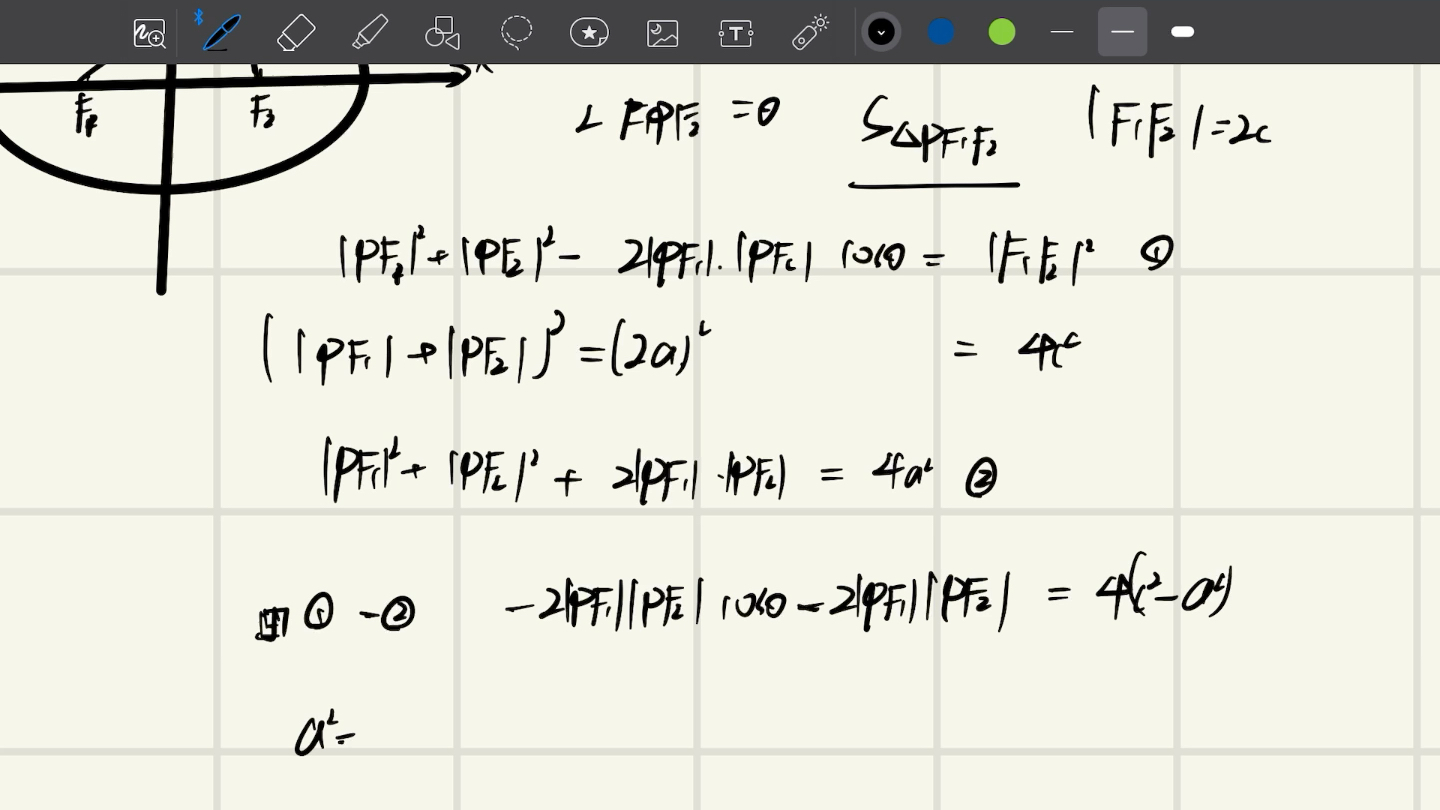 x
F₁ F₂
∠F₁PF₂ = θ S△PF₁F₂ |F₁F₂| = 2c
|PF₁|² + |PF₂|² - 2|PF₁|·|PF₂| cosθ = |F₁F₂|² ①
(|PF₁| + |PF₂|)² = (2a)² = 4c²
|PF₁|² + |PF₂|² + 2|PF₁|·|PF₂| = 4a² ②
① - ② -2|PF₁||PF₂| cosθ - 2|PF₁||PF₂| = 4(c² - a²)
a² =